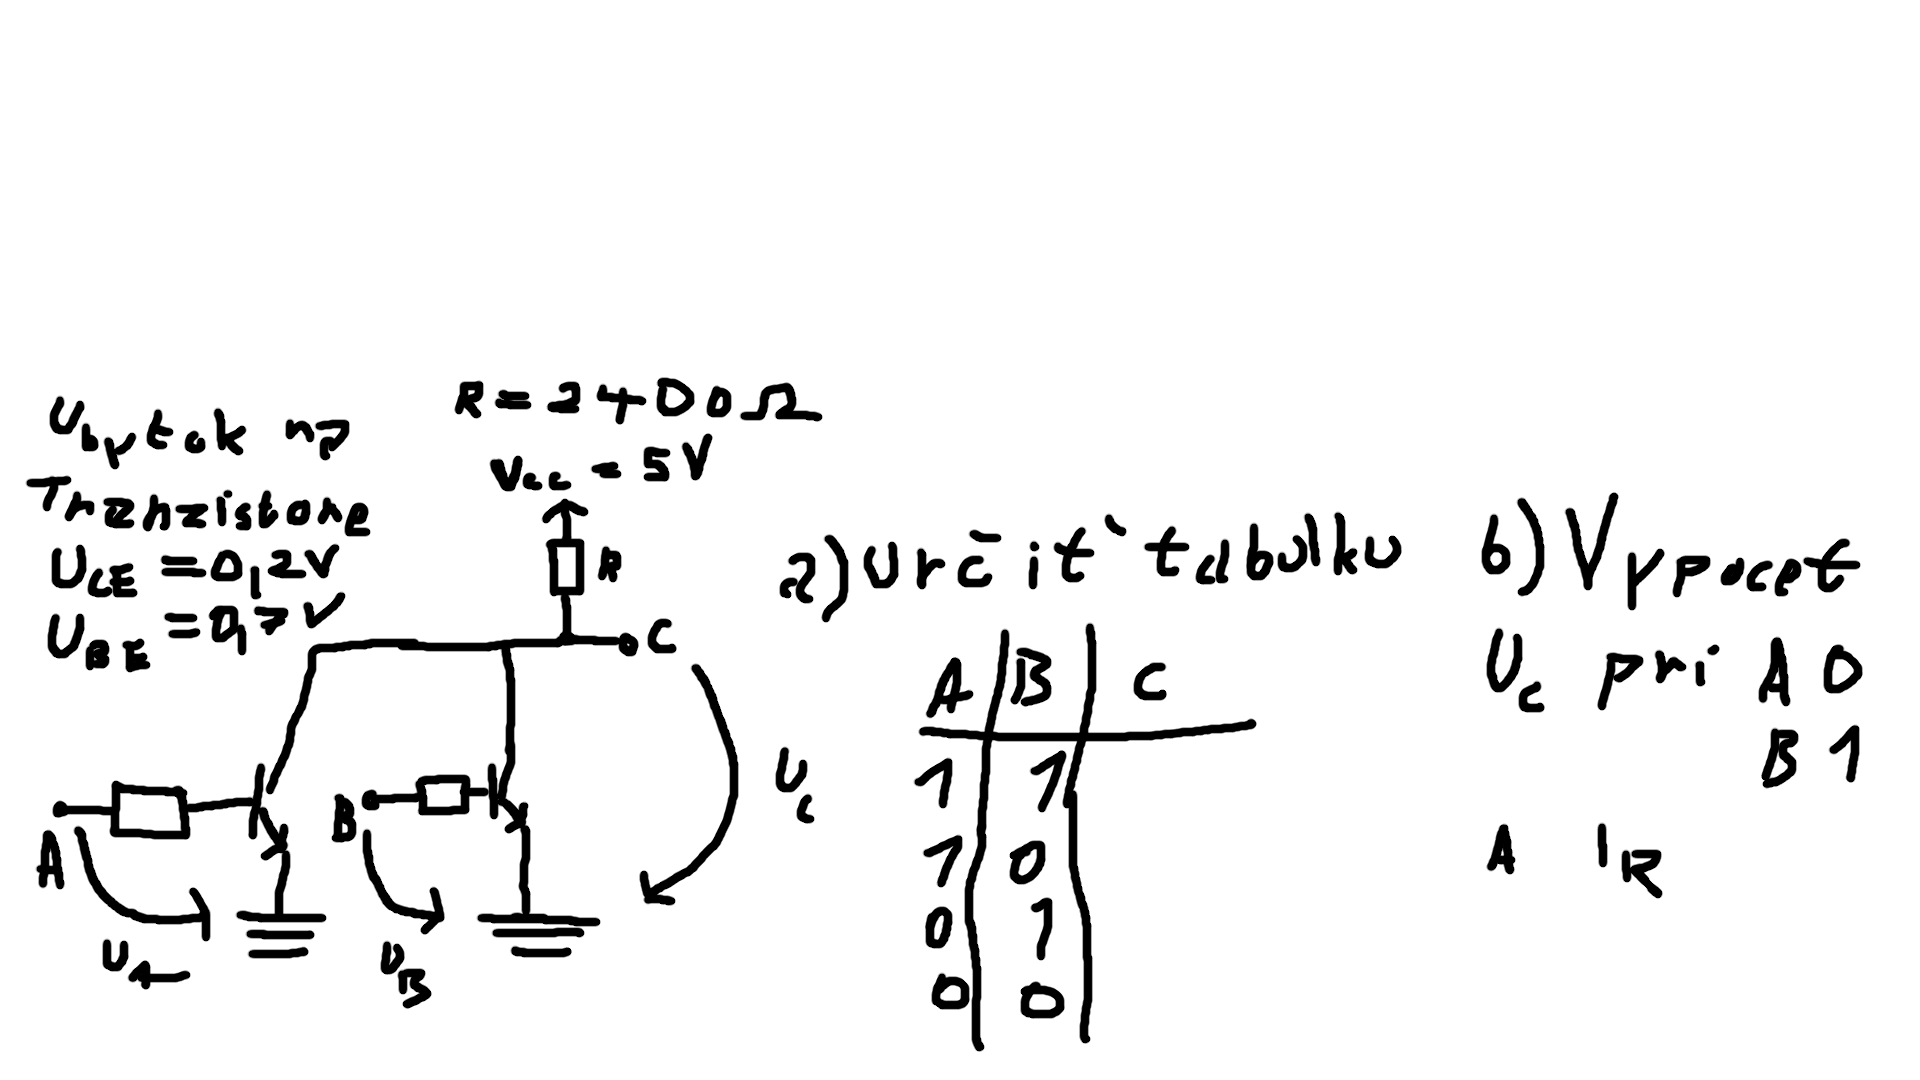 Ubytok na
Tranzistore
UCE = 0,2V
UBE = 0,7V
R = 2400Ω
Vcc = 5V
R
C
A
B
UA
UB
Uc
a) Určiť tabulku
A B C
1 1
1 0
0 1
0 0
b) Vypocet
Uc pri A 0
B 1
A IR